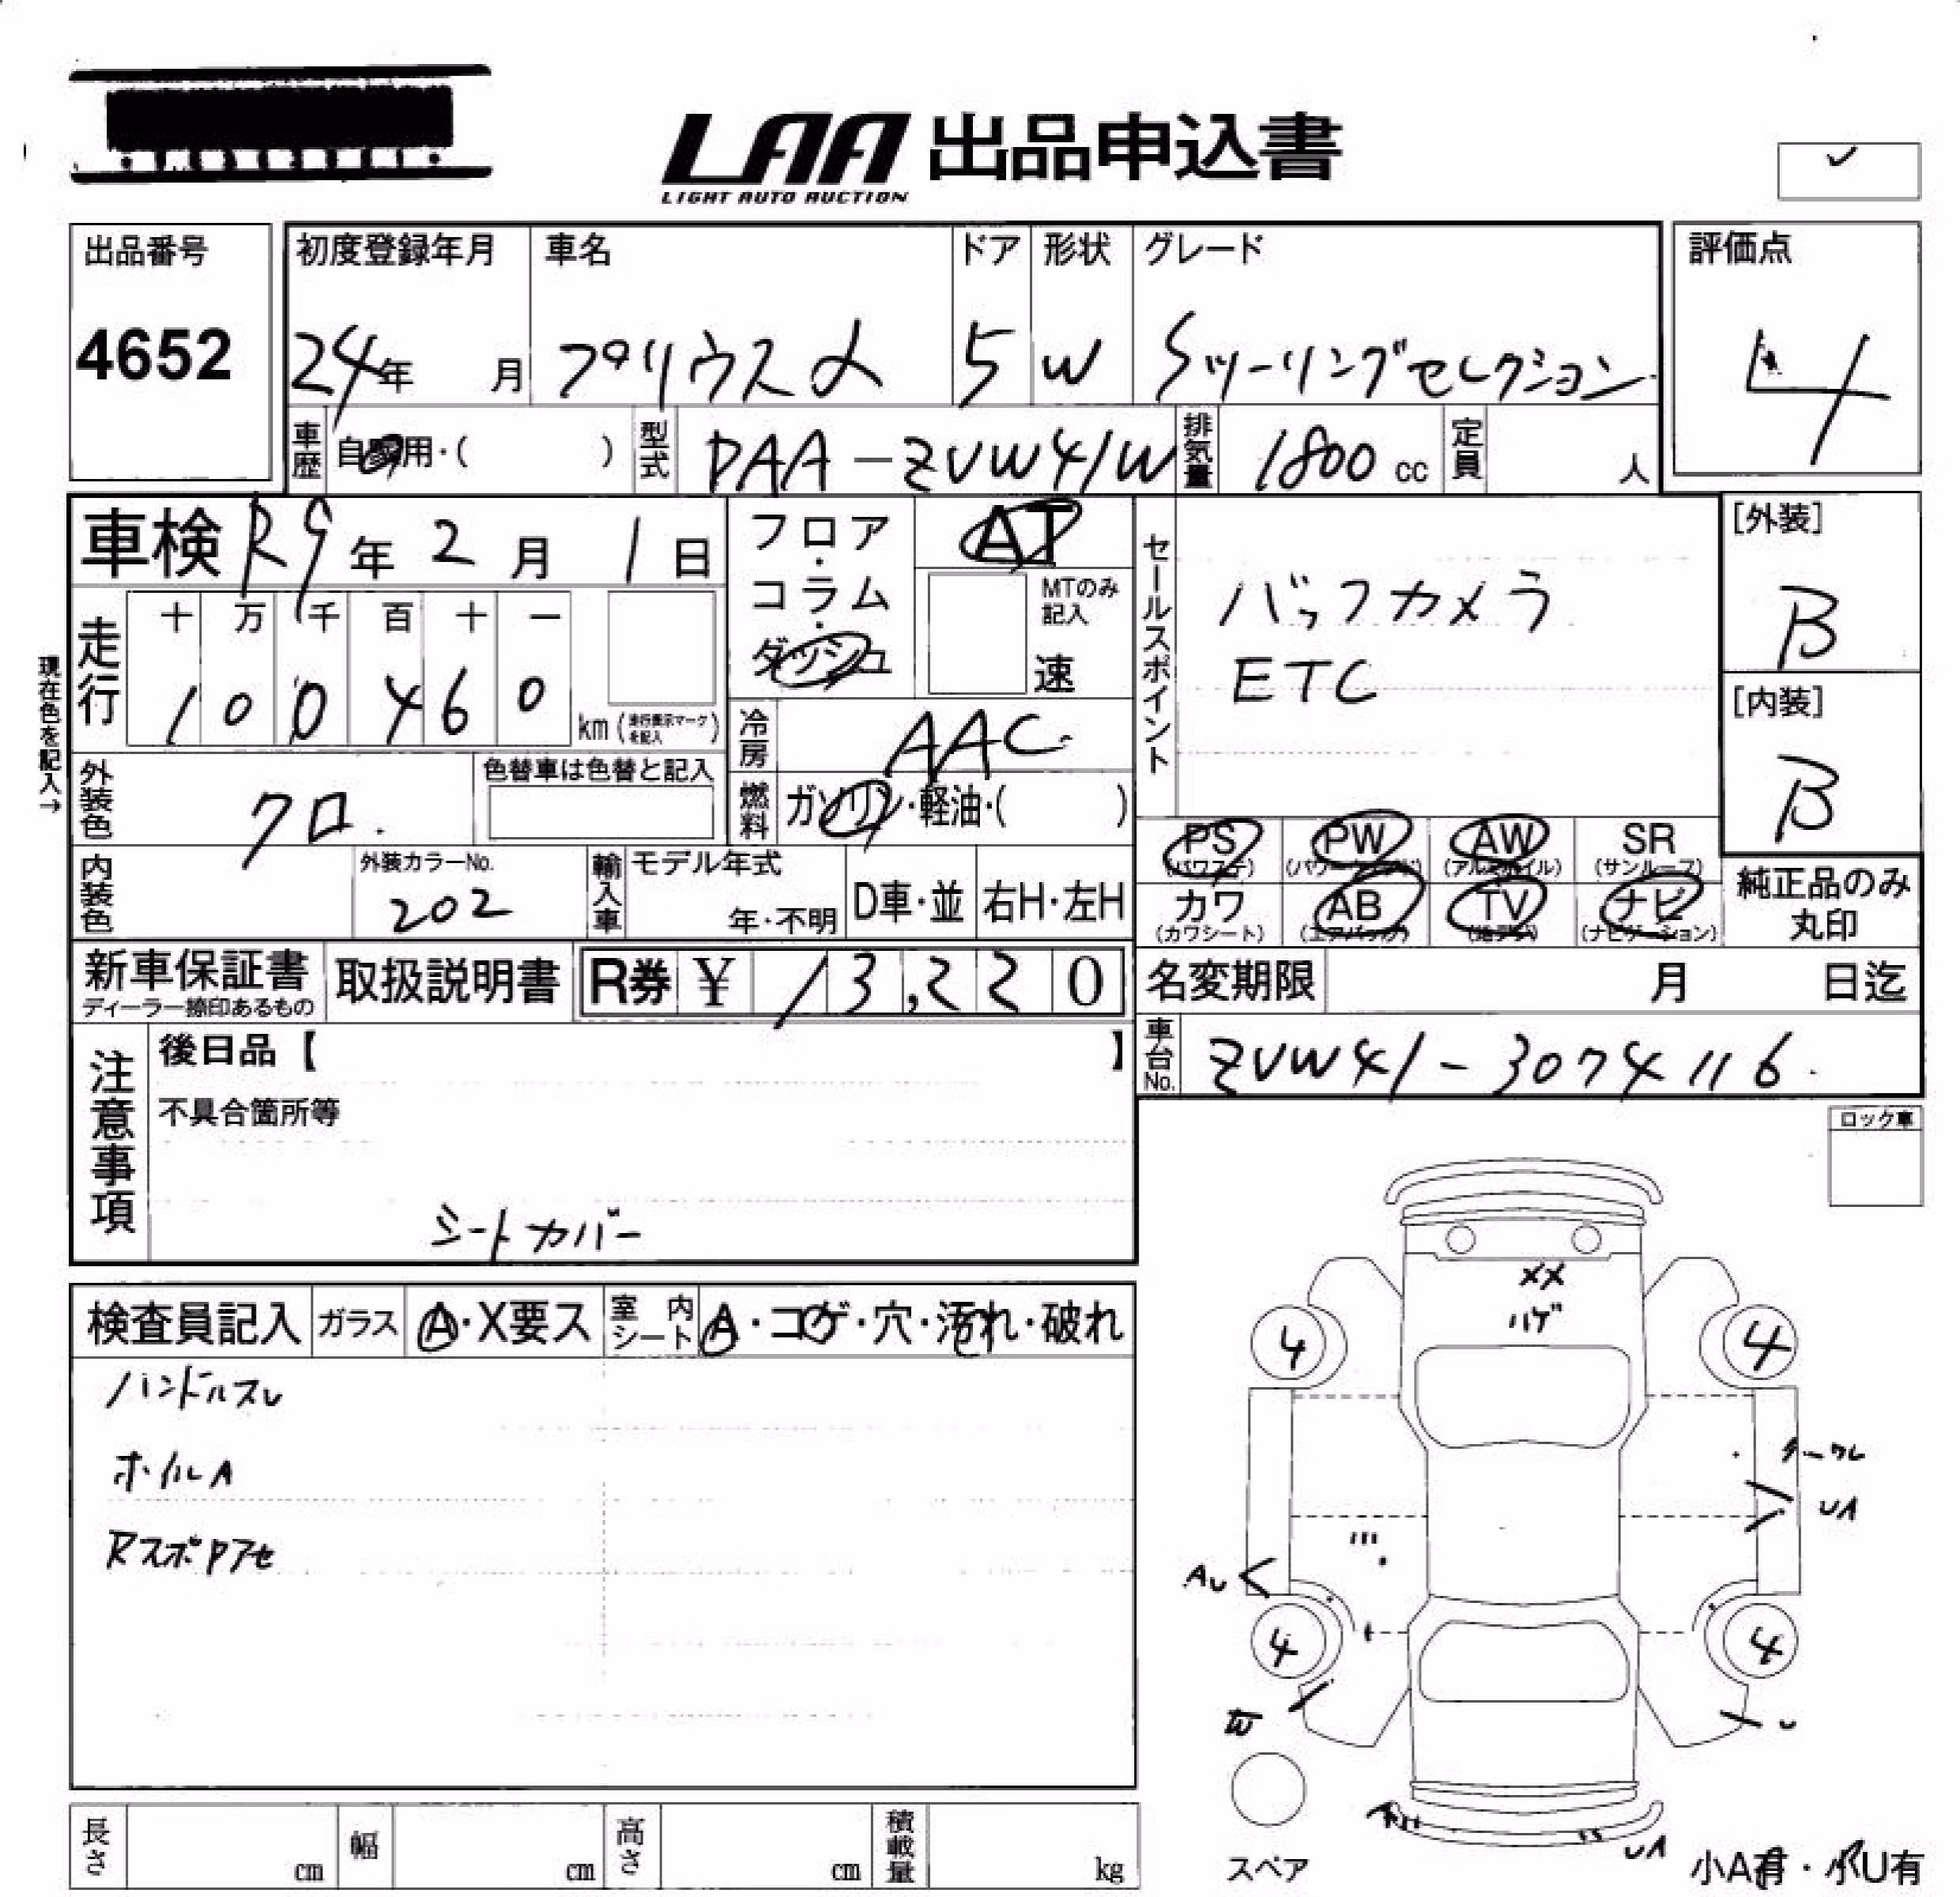 LAA 出品申込書
LIGHT AUTO AUCTION
出品番号
4652
初度登録年月
24年 月
車名
プリウスα
ドア
5
形状
W
グレード
Sツーリングセレクション
評価点
4
車歴
自家用・( )
型式
DAA-ZVW41W
排気量
1800 cc
定員
人
車検 R9年 2月 1日
フロア・コラム・ダッシュ
AT
MTのみ記入
速
セールスポイント
バックカメラ
ETC
[外装]
B
[内装]
B
現在色を記入→
走行
十 万 千 百 十 一
1 0 0 4 6 0
km (走行表示マークを記入)
冷房
AAC
燃料
ガソリン・軽油・( )
外装色
クロ
色替車は色替と記入
内装色
外装カラーNo.
202
輸入車
モデル年式
年・不明
D車・並
右H・左H
PS
(パワステ)
PW
(パワーウィンド)
AW
(アルミホイル)
SR
(サンルーフ)
カワ
(カワシート)
AB
(エアバッグ)
TV
(地デジ)
ナビ
(ナビゲーション)
純正品のみ
丸印
新車保証書
ディーラー捺印あるもの
取扱説明書
R券 ¥ 13,220
名変期限 月 日迄
車台No.
ZVW41-3074116
注意事項
後日品【 】
不具合箇所等
シートカバー
ロック車
検査員記入
ガラス
A・X要ス
室内シート
A・コゲ・穴・汚れ・破れ
ハンドルスレ
ホイルA
RスポPアセ
XX
ハゲ
4
4
UA
AU
4
4
W
U
UA
スペア
小A有・小U有
長さ
cm
幅
cm
高さ
cm
積載量
kg